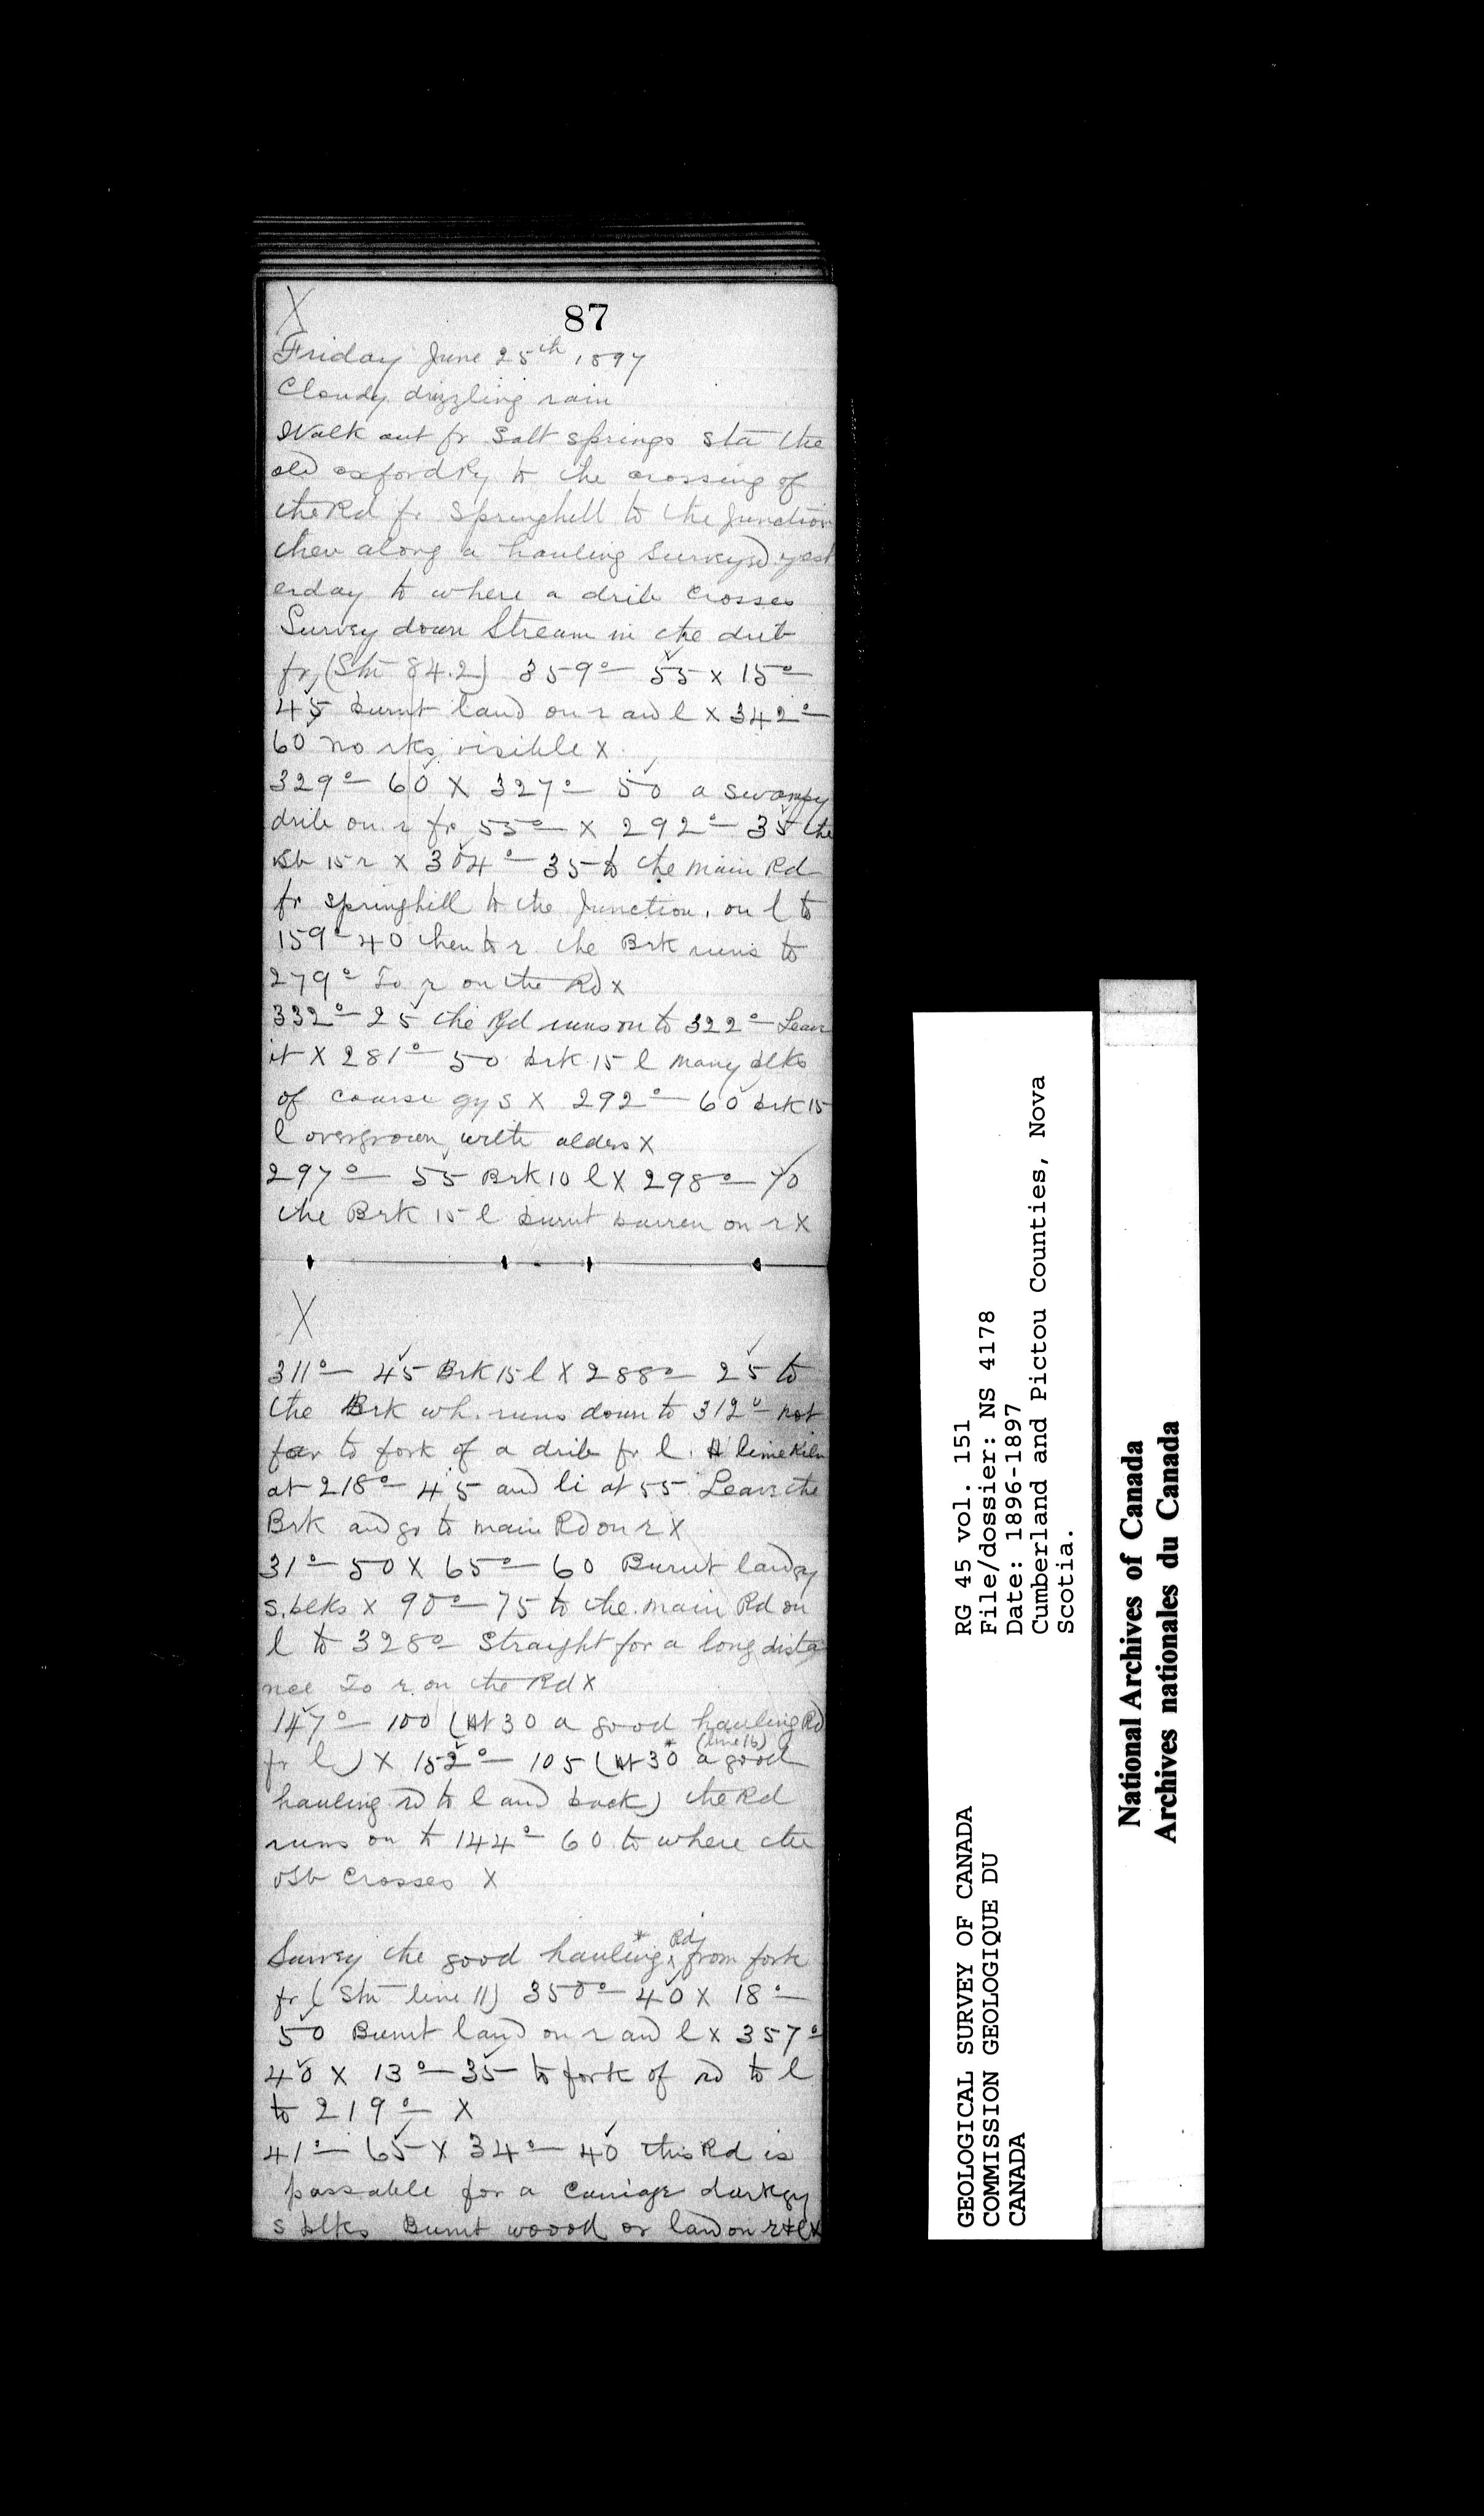 X
87
Friday June 25th 1897
Cloudy drizzling rain
Walk out fr Salt springs sta the
old oxford Ry to the crossing of
the Rd fr Springhill to the Junction
then along a hauling surveyed yest
erday to where a drib crosses
Survey down Stream in the drib
fr (Stn 84.2) 359° 55 x 15°
45 burnt land on r and l x 342°
60 no rks visible x
329° 60 x 327° 50 a swampy
drib on r fr 55° x 292° 35 the
15 r x 304° 35 to the main Rd
fr springhill to the Junction, on l to
159° 40 then to r. the Brk runs to
279° To r on the Rd x
332° 25 the Rd runs on to 322° Leave
it x 281° 50 brk 15 l many blks
of coarse gy s x 292° 60 brk 15
l overgrown with alders x
297° 55 Brk 10 l x 298° 70
the Brk 15 l burnt barren on r x
X
311° 45 Brk 15 l x 288° 25 to
the Brk wh. runs down to 312° not
far to fork of a drib fr l. A lime kiln
at 218° 45 and li at 55 Leave the
Brk and go to main Rd on r x
31° 50 x 65° 60 Burnt land gy
s. blks x 90° 75 to the main Rd on
l to 328° Straight for a long dista
nce To r. on the Rd x
147° 100 (At 30 a good hauling Rd
(line 16)
fr l) x 152° 105 (At 30 * a good
hauling rd to l and back) the Rd
runs on to 144° 60 to where the
crosses x
Survey the good hauling * Rd from fork
fr (Stn line 11) 350° 40 x 18°
50 Burnt land on r and l x 357°
40 x 13° 35 to fork of rd to l
to 219° x
41° 65 x 34° 40 this Rd is
passable for a carriage dark gy
s blks Burnt woood or land on r & l x
GEOLOGICAL SURVEY OF CANADA
COMMISSION GEOLOGIQUE DU
CANADA
RG 45 vol. 151
File/dossier: NS 4178
Date: 1896-1897
Cumberland and Pictou Counties, Nova
Scotia.
National Archives of Canada
Archives nationales du Canada